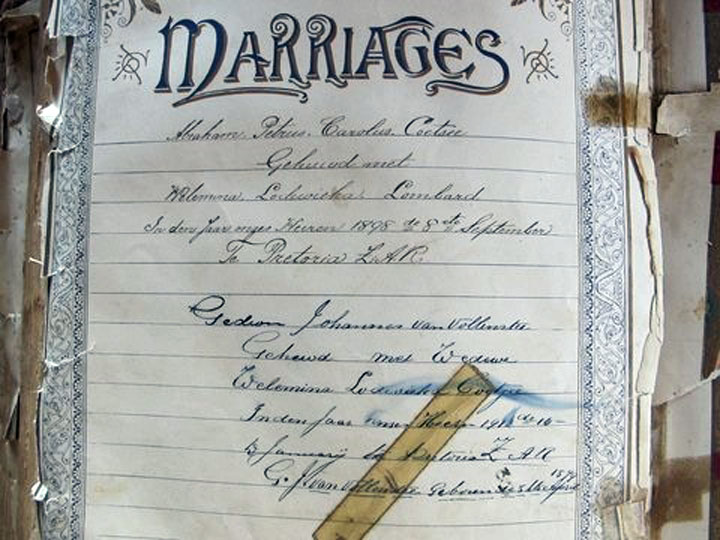 MARRIAGES
Abraham Petrus Carolus Coetsee
Gehuwd met
Welemina Lodewiska Lombard
In den Jaar onzes Heeren 1898 de 8 ste September
Te Pretoria Z.A.R.
Gedeon Johannes van Vollenstee
Gehewd met Wedewe
Welemina Lodewiska
In den Jaar Heer
January Pretoria Z A R
G. J. van Geboren